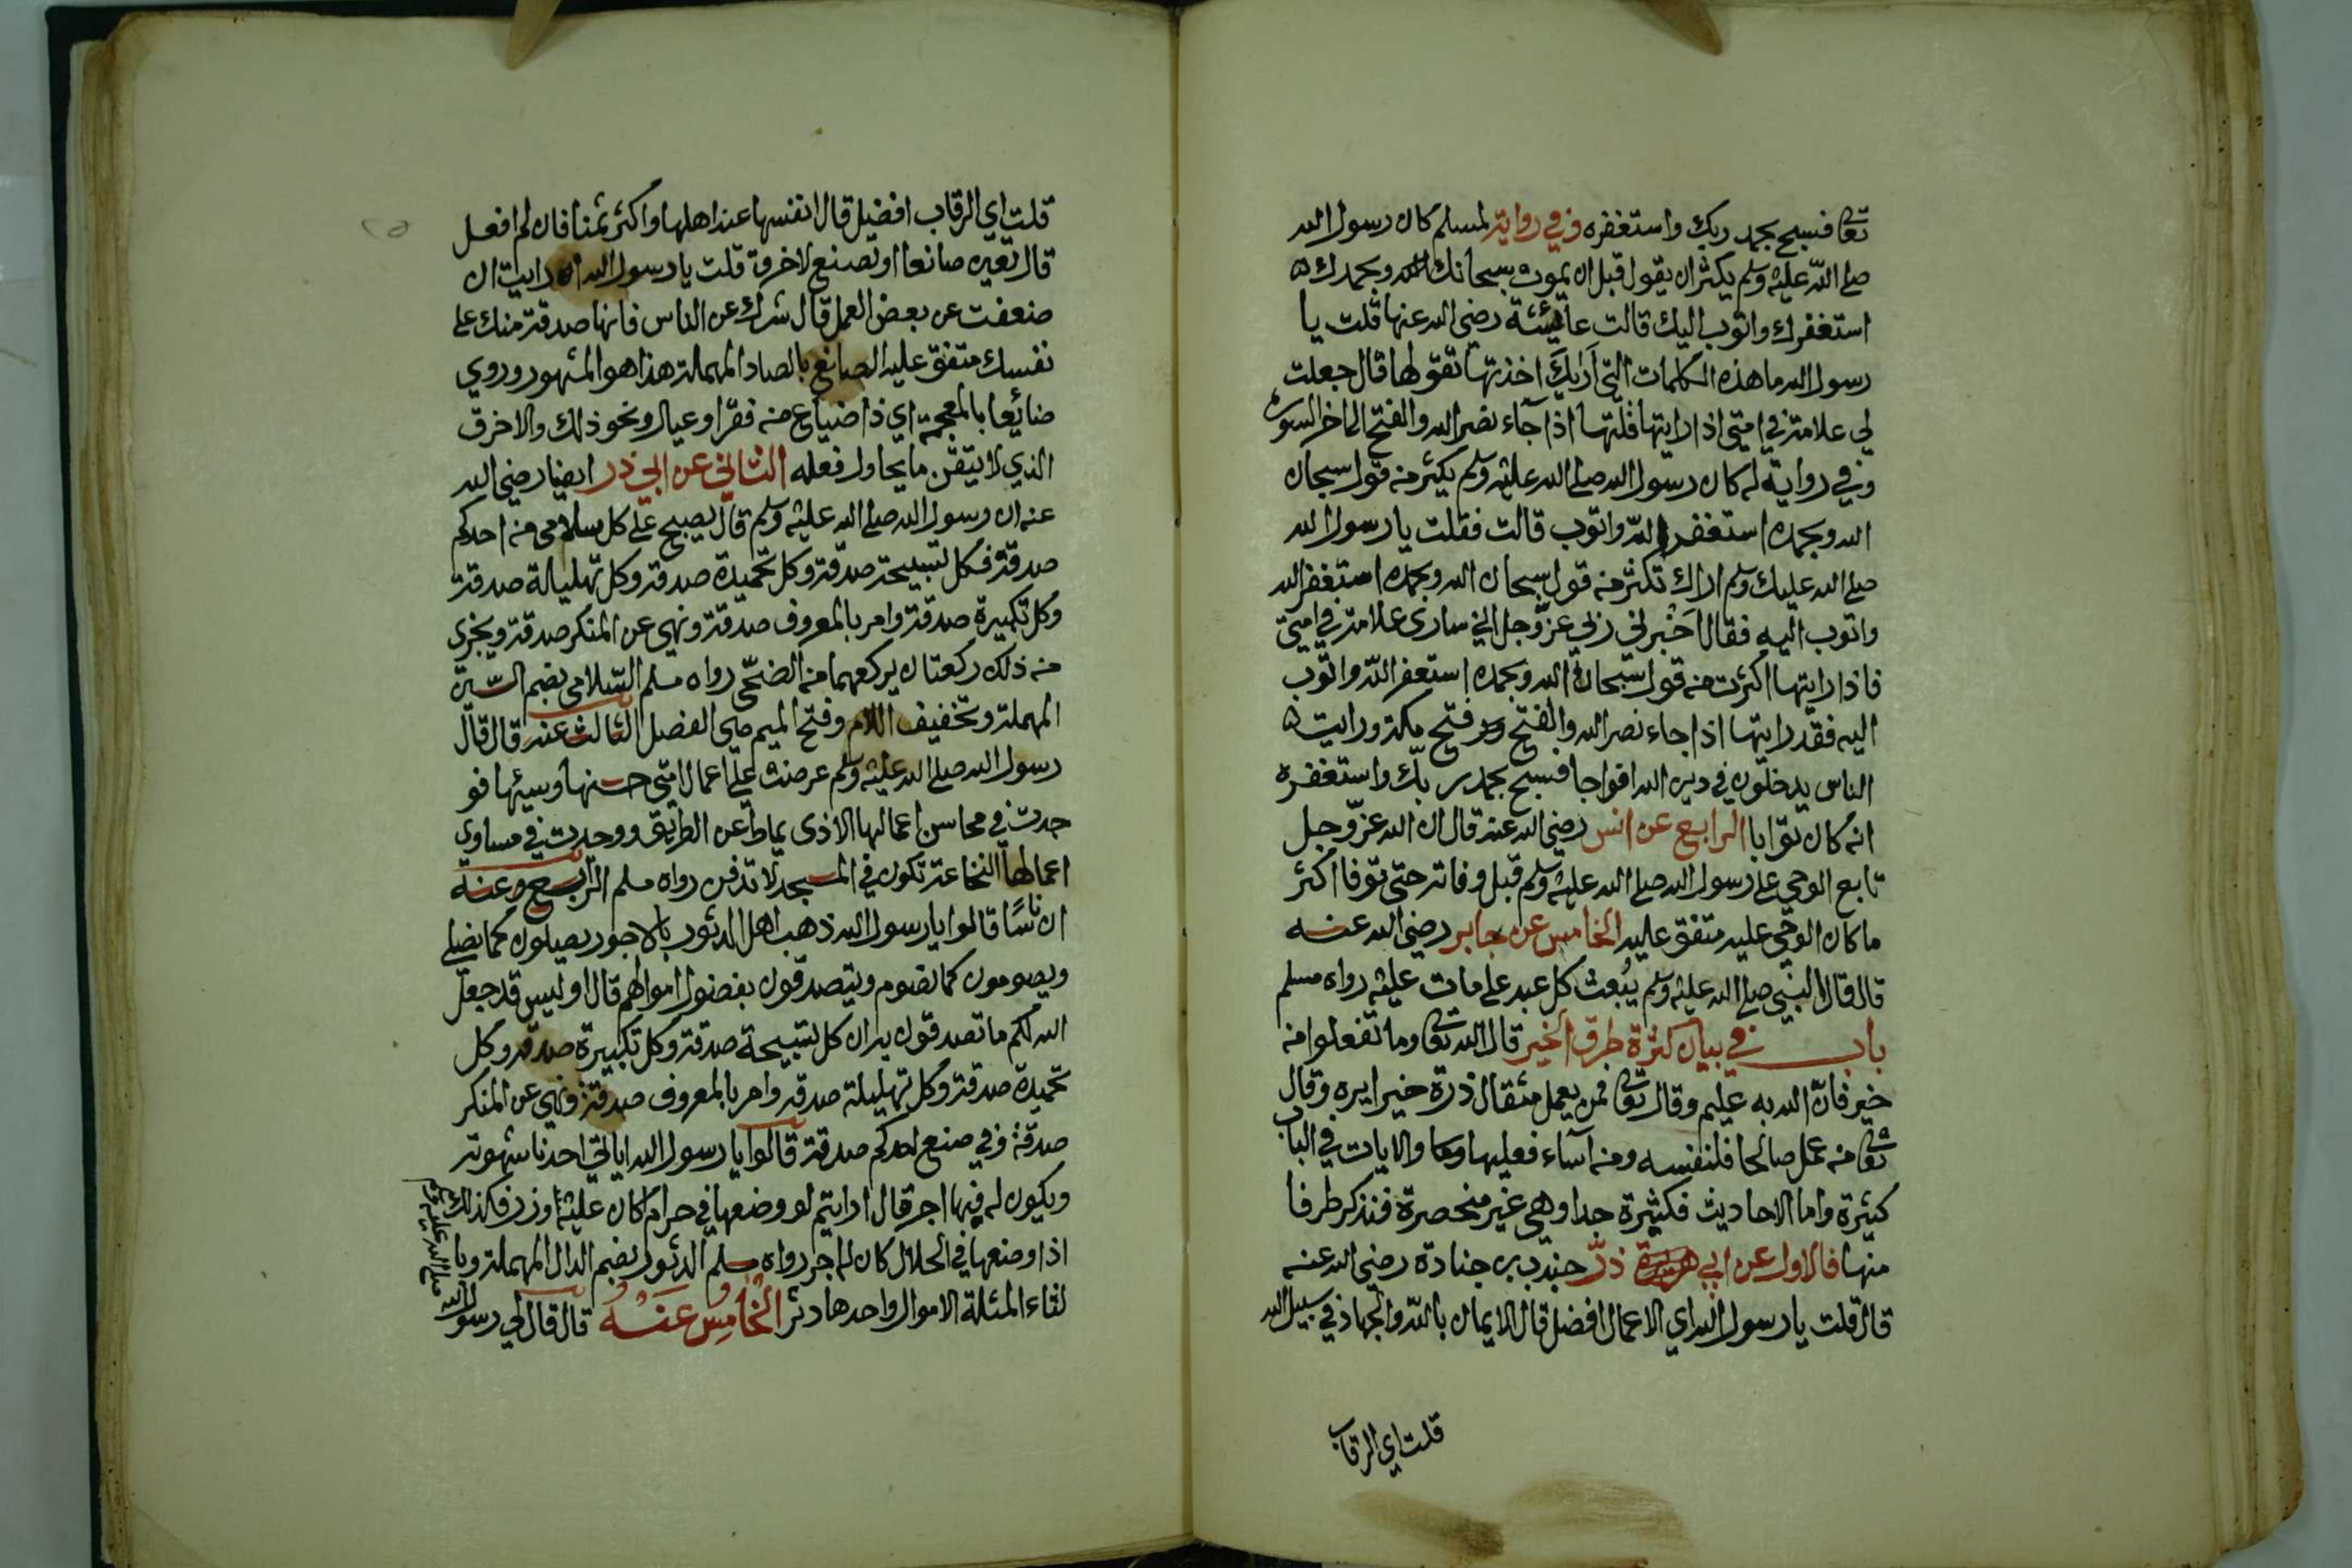 تعا فسبح بحمد ربك واستغفره وفي رواية لمسلم كان رسول الله
صلى الله عليه وسلم يكثر ان يقول قبل ان يموت سبحانك اللهم وبحمدك
استغفرك واتوب اليك قالت عائشة رضي الله عنها قلت يا
رسول الله ما هذه الكلمات التي اراك اخذتها تقولها قال جعلت
لي علامة في امتي اذا رايتها قلتها اذا جآء نصر الله والفتح الى اخر السورة
وفي رواية له كان رسول الله صلى الله عليه وسلم يكثر من قول سبحان
الله وبحمده استغفر الله واتوب قالت فقلت يا رسول الله
صلى الله عليك وسلم اراك تكثر من قول سبحان الله وبحمده استغفر الله
واتوب اليه فقال اخبرني ربي عز وجل اني سارى علامة في امتي
فاذا رايتها اكثرت من قول سبحان الله وبحمده استغفر الله واتوب
اليه فقد رايتها اذا جاء نصر الله والفتح فتح مكة ورايت
الناس يدخلون في دين الله افواجا فسبح بحمد ربك واستغفره
انه كان توابا الرابع عن انس رضي الله عنه قال ان الله عز وجل
تابع الوحي على رسول الله صلى الله عليه وسلم قبل وفاته حتى توفا اكثر
ما كان الوحي عليه متفق عليه الخامس عن جابر رضي الله عنه
قال قال النبي صلى الله عليه وسلم يُبعث كل عبد على مات عليه رواه مسلم
باب في بيان كثرة طرق الخير قال الله تعا وما تفعلوا من
خير فانّ الله به عليم وقال تعا فمن يعمل مثقال ذرة خيرا يره وقال
تعا من عمل صالحا فلنفسه ومن اسآء فعليها والايات في الباب
كثيرة واما الاحاديث فكثيرة جدا وهي غير منحصرة فنذكر طرفا
منها فالاول عن ابي ذرّ جندب بن جنادة رضي الله عنه
قال قلت يا رسول الله اي الاعمال افضل قال الايمان بالله والجهاد في سبيل الله
قلت اي الرقاب
قلت اي الرقاب افضل قال انفسها عند اهلها واكثر ثمنا فان لم افعل
قال تعين صانعا او تصنع لاخرق قلت يا رسول الله ان رايت ان
ضعفت عن بعض العمل قال شرك عن الناس فانها صدقة منك على
نفسك متفق عليه الصانع بالصاد المهملة هذا هو المشهور وروي
ضائعا بالمعجمة اي ذا ضياع من فقر او عيال ونحو ذلك والاخرق
الذي لا يتقن ما يحاول فعله الثاني عن ابي ذر ايضا رضي الله
عنه ان رسول الله صلى الله عليه وسلم قال يصبح على كل سلامى من احدكم
صدقة فكل تسبيحة صدقة وكل تحميدة صدقة وكل تهليلة صدقة
وكل تكبيرة صدقة وامر بالمعروف صدقة ونهي عن المنكر صدقة ويجزى
من ذلك ركعتان يركعهما من الضحى رواه مسلم السلامى بضم السين
المهملة وتخفيف اللام وفتح الميم هي الفصل الثالث عنه قال قال
رسول الله صلى الله عليه وسلم عرضت علي اعمال امتي حسنها وسيئها فو
جدت في محاسن اعمالها الاذى يماط عن الطريق ووجدت في مساوي
اعمالها النخاعة تكون في المسجد لا تدفن رواه مسلم الرابع وعنه
ان ناسًا قالوا يا رسول الله ذهب اهل الدثور بالاجور يصلون كما نصلي
ويصومون كما نصوم ويتصدقون بفضول اموالهم قال اوليس قد جعل
الله لكم ما تصدقون به ان كل تسبيحة صدقة وكل تكبيرة صدقة وكل
تحميدة صدقة وكل تهليلة صدقة وامر بالمعروف صدقة ونهي عن المنكر
صدقة وفي بضع احدكم صدقة قالوا يا رسول الله ايأتي احدنا شهوته
ويكون له فيها اجر قال ارايتم لو وضعها في حرام اكان عليه وزر فكذلك
اذا وضعها في الحلال كان له اجر رواه مسلم الدثور بضم الدال المهملة وبا
لثاء المثلثة الاموال واحدها دثر الخامس عنه قال قال لي رسول الله
صلى الله عليه وسلم